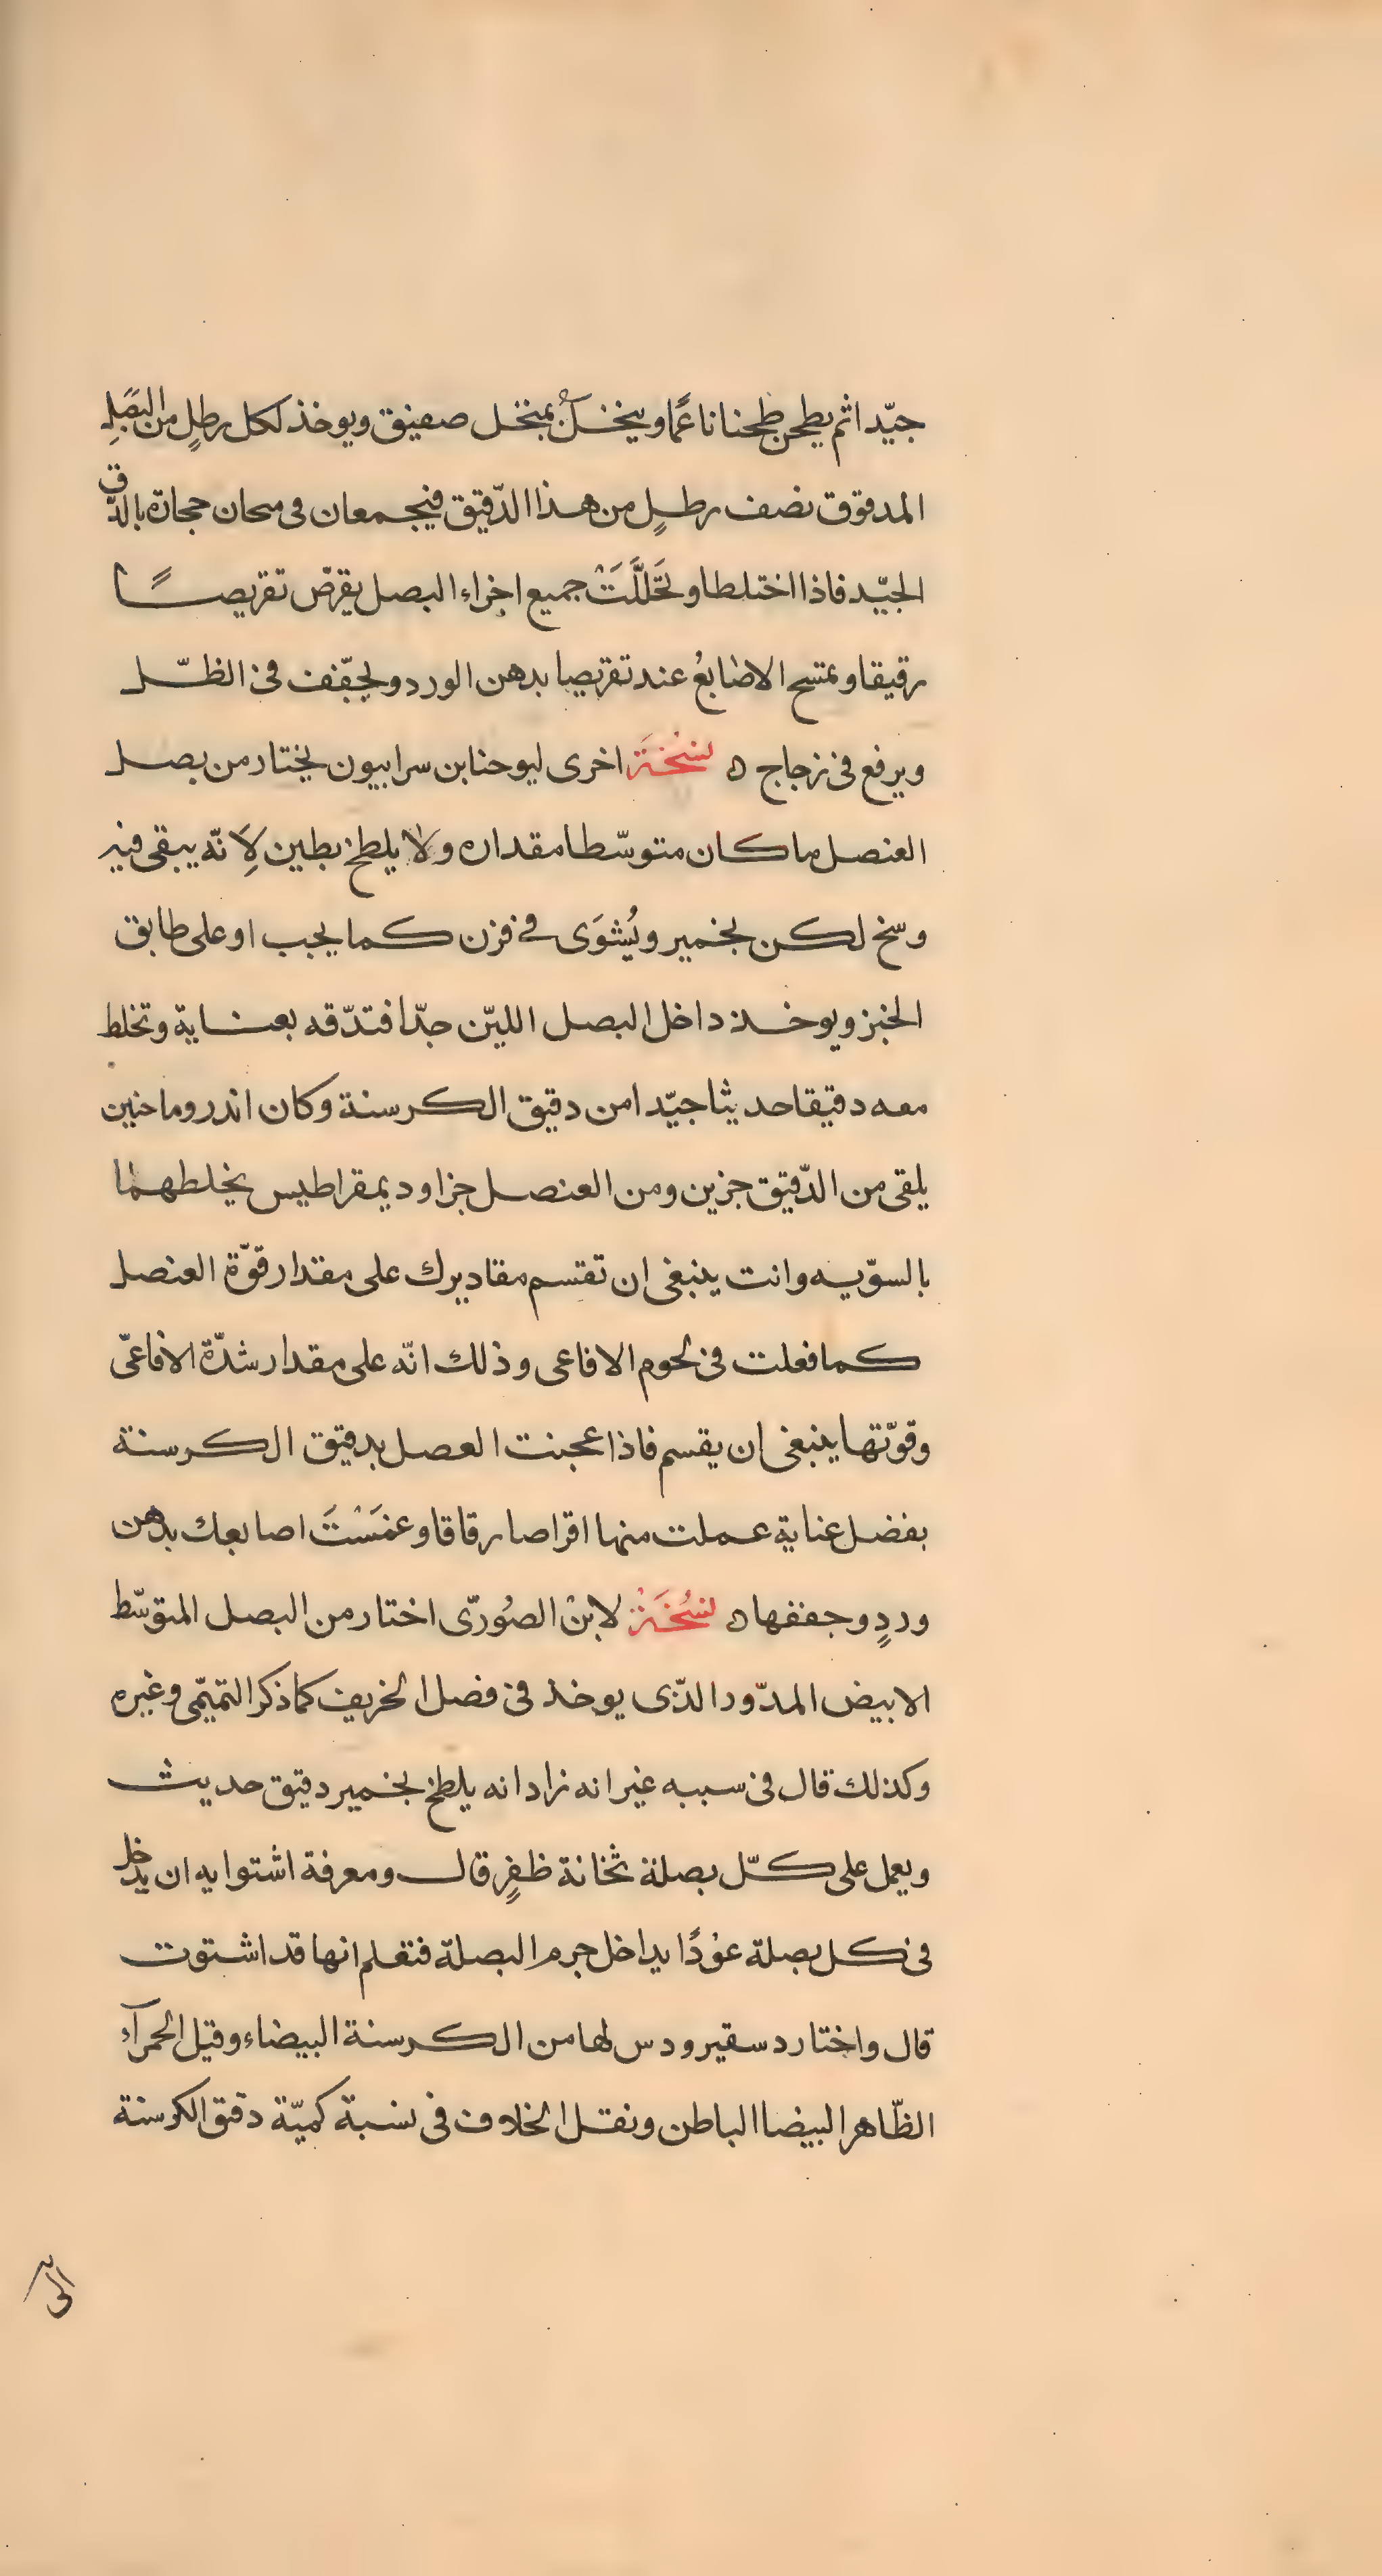 جيّدا ثم يطحن طحنا ناعمًا وينخل بمنخل صفيق ويوخذ لكل رطلٍ من البَصَلِ
المدقوق نصف رطلٍ من هذا الدّقيق فيجمعان فى حجارة بالدّق
الجيّد فاذا اختلطا وتَحَلَّلَتْ جميع اجزاء البصل يقرّص تقريصًا
رقيقا وتمتسح الاصابعُ عند تقريصها بدهن الورد ويجفّف فى الظّل
ويرفع فى زجاج ه نسْخَة اخرى ليوحنا بن سرابيون يختار من بصل
العنصل ما كان متوسّطا مقداره ولا يلطخ بطين لِاَنّه يبقى فيه
وسخ لكن بخمير ويُشْوَى فى فرن كما يجب او على طابق
الخبز ويوخذ داخل البصل الليّن جدّا فتدّقه بعناية وتخلط
معه دقيقا حديثا جيّدا من دقيق الكرسنة وكان اندروماخين
يلقى من الدّقيق جزين ومن العنصل جزا وديمقراطيس يخلطهما
بالسوّيه وانت ينبغى ان تقسم مقاديرك على مقدار قوّة العنصل
كما فعلت فى لحوم الافاعى وذلك انّه على مقدار شدّة الافاعىّ
وقوّتها ينبغى ان يقسم فاذا عجنت العصل بدقيق الكرسنة
بفضل عناية عملت منها اقراصا رقاقا وغمَسْتَ اصابعك بدهن
وردٍ وجففها ه نسُخَة لابنْ الصُورّى اختار من البصل المتوسّط
الابيض المدّور الذّى يوخذ فى فصل الخريف كما ذكر التميّمى وغيره
وكذلك قال فى سببه غير انه زاد انه يلطخ بخمير دقيق حديث
ويعمل على كلّ بصلة ثخانة ظفرٍ قال ومعرفة اشتوايه ان يدخل
فى كل بصلة عوْدًا يداخل جرم البصلة فتعلم انها قد اشتوت
قال واختار دسقيرودس لها من الكرسنة البيضاء وقيل الحمرآء
الظّاهر البيضا الباطن ونقل الخلاف فى نسبة كميّة دقيق الكرسنة
الى